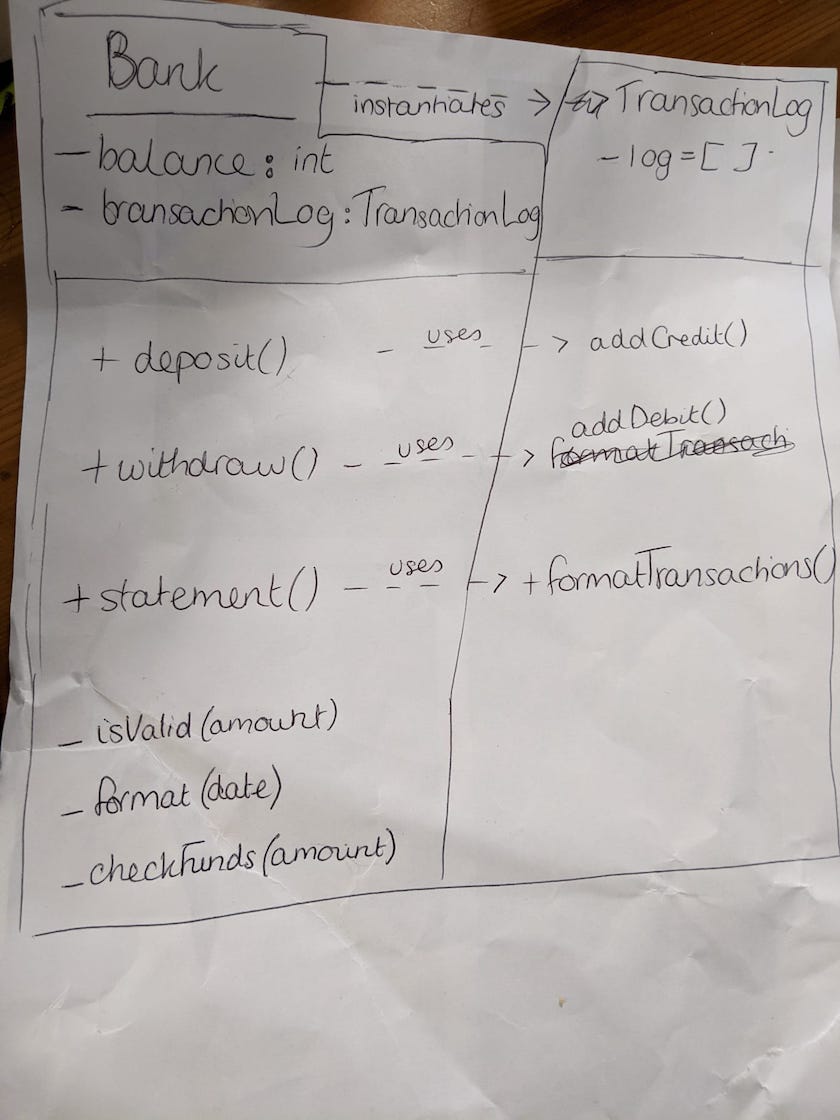 Bank
instantiates -> TransactionLog
- balance : int
- log = [ ]
- transactionLog : TransactionLog
+ deposit() - uses - -> addCredit()
addDebit()
+ withdraw() - uses - -> formatTransach
+ statement() - uses - -> + formatTransactions()
- isValid(amount)
- format(date)
- checkFunds(amount)